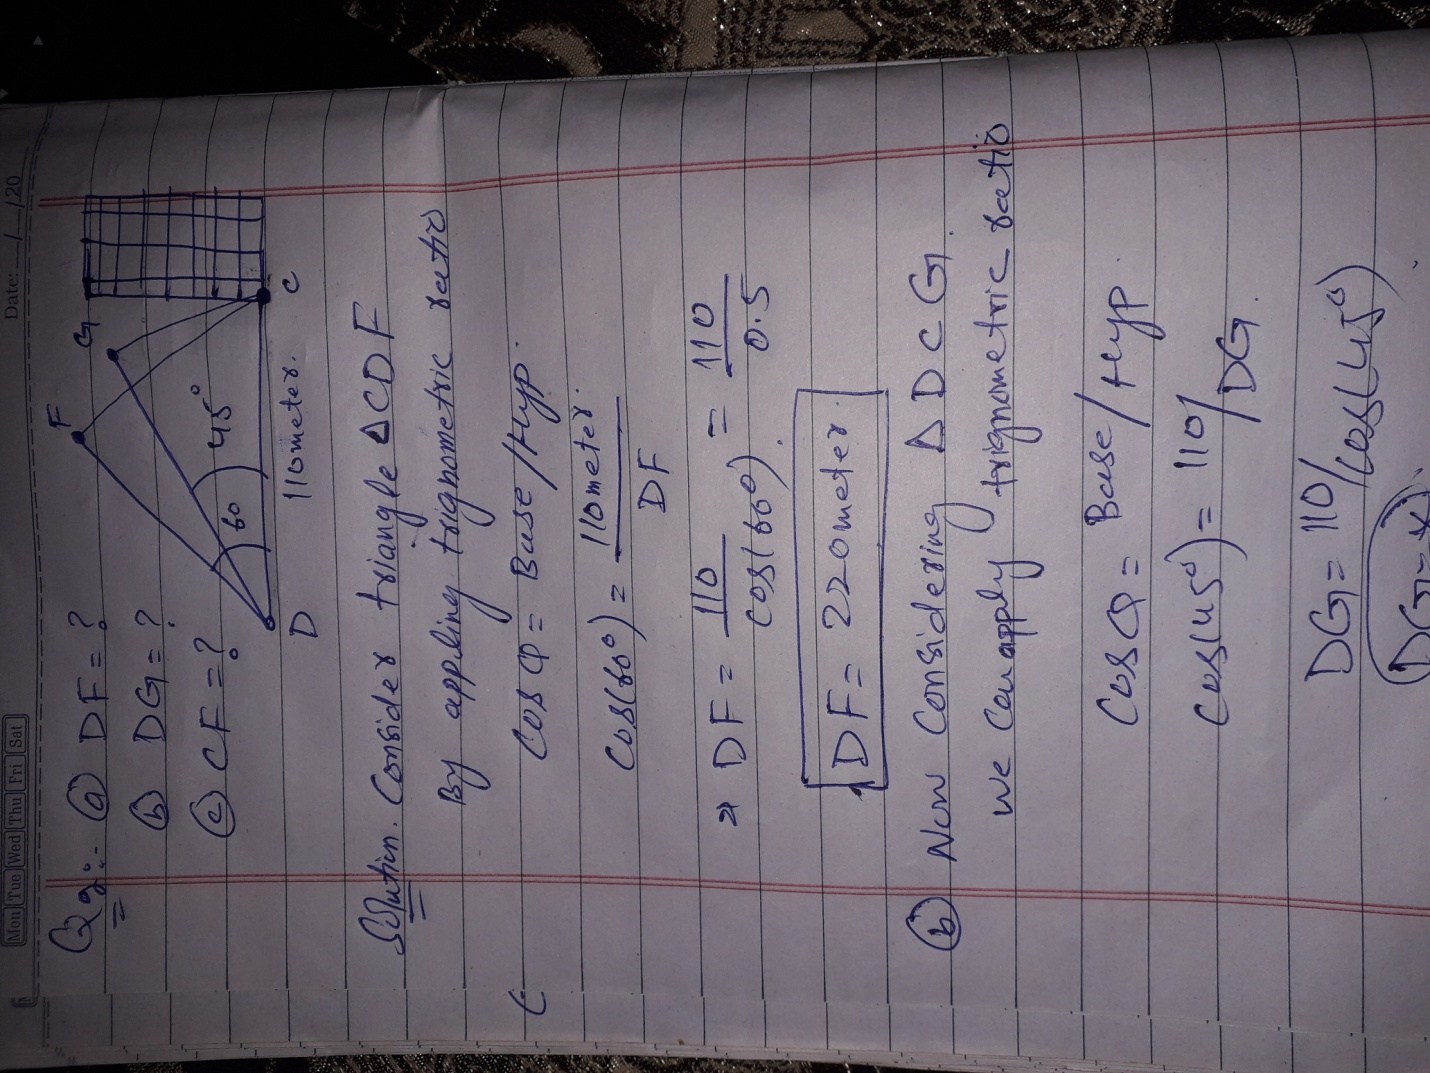 Mon Tue Wed Thu Fri Sat
Date: __/__/20
Q02:- (a) DF = ?
(b) DG = ?
(c) CF = ?
F
G
60
45°
D
110meter.
C
Solution. Consider triangle ΔCDF
By appling trignometric ratio
Cos φ = Base/Hyp.
Cos(60°) = 110meter. / DF
⇒ DF = 110 / cos(60°). = 110 / 0.5
DF = 220meter.
(b) Now Considering Δ DCG.
we Can apply trignometric ratio
Cos φ = Base/Hyp
Cos(45°) = 110/DG.
DG = 110/Cos(45°)